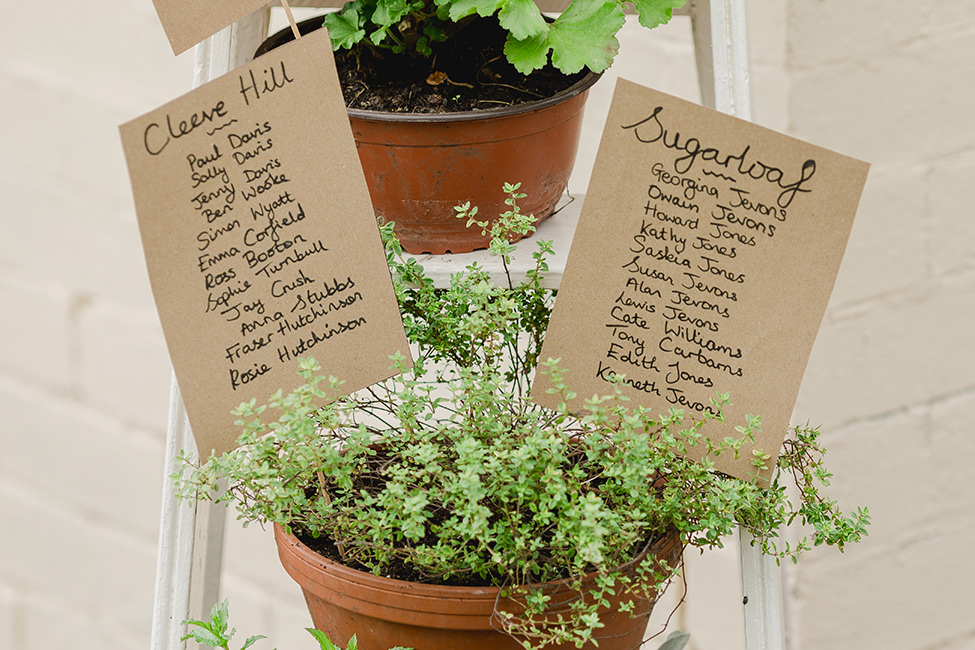 Cleeve Hill
Paul Davis
Sally Davis
Jenny Davis
Ben Wooke
Simon Wyatt
Emma Corfield
Ross Booton
Sophie Turnbull
Jay Crush
Anna Stubbs
Fraser Hutchinson
Rosie Hutchinson
Sugarloaf
Georgina Jevons
Owain Jevons
Howard Jones
Kathy Jones
Saskia Jones
Susan Jevons
Alan Jevons
Lewis Jevons
Cate Williams
Tony Carbarns
Edith Jones
Kenneth Jevons